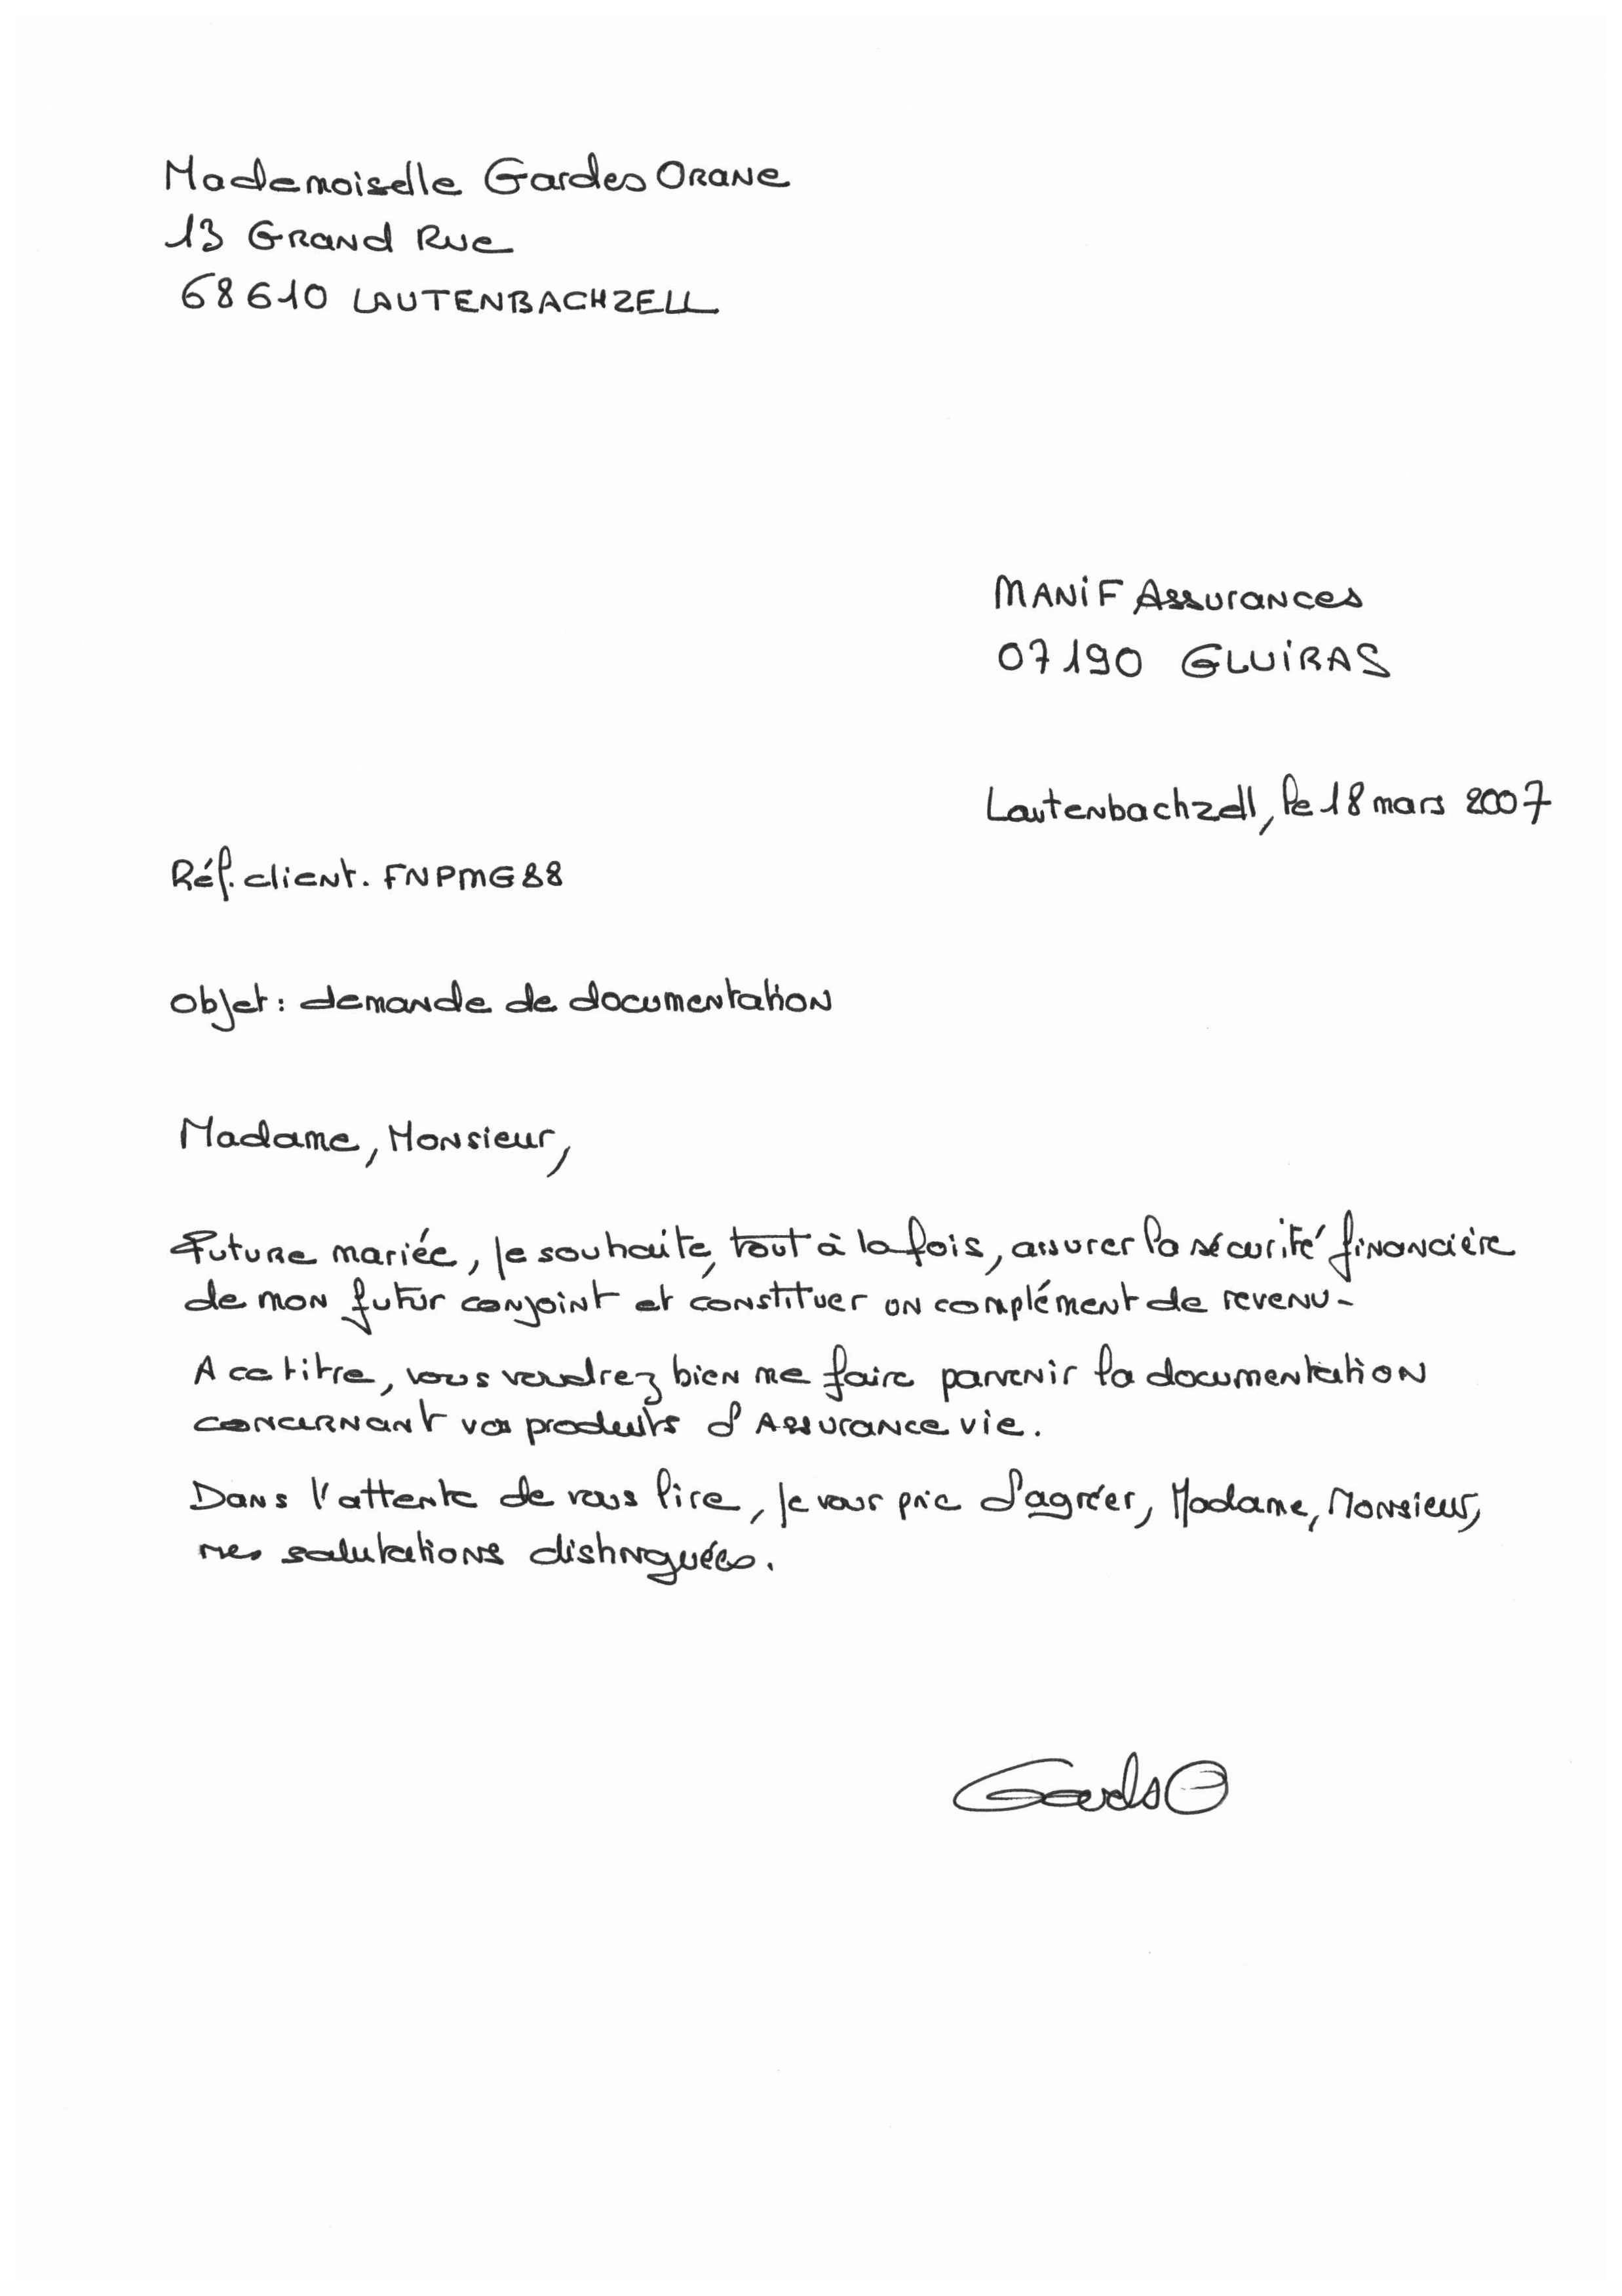 Mademoiselle Gardes Orane
13 Grand Rue
68610 LAUTENBACHZELL
MANIF Assurances
07190 GLUIRAS
Lautenbachzell, le 18 mars 2007
Réf. client. FNPMG88
Objet : demande de documentation
Madame, Monsieur,
Future mariée, je souhaite, tout à la fois, assurer la sécurité financière
de mon futur conjoint et constituer un complément de revenu-
A ce titre, vous voudrez bien me faire parvenir la documentation
concernant vos produits d'Assurance vie.
Dans l'attente de vous lire, je vous prie d'agréer, Madame, Monsieur,
mes salutations distinguées.
Gardes O